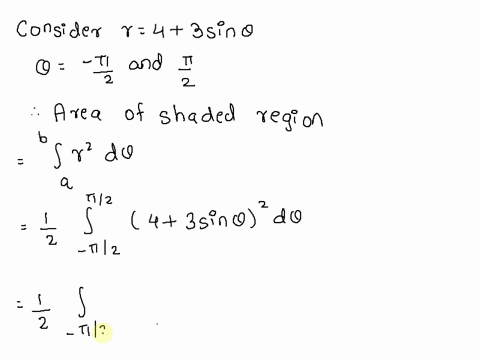 Consider r = 4 + 3 sinθ
θ = -π/2 and π/2
∴ Area of shaded region
= ∫_a^b r² dθ
= 1/2 ∫_{-π/2}^{π/2} (4 + 3 sinθ)² dθ
= 1/2 ∫_{-π/